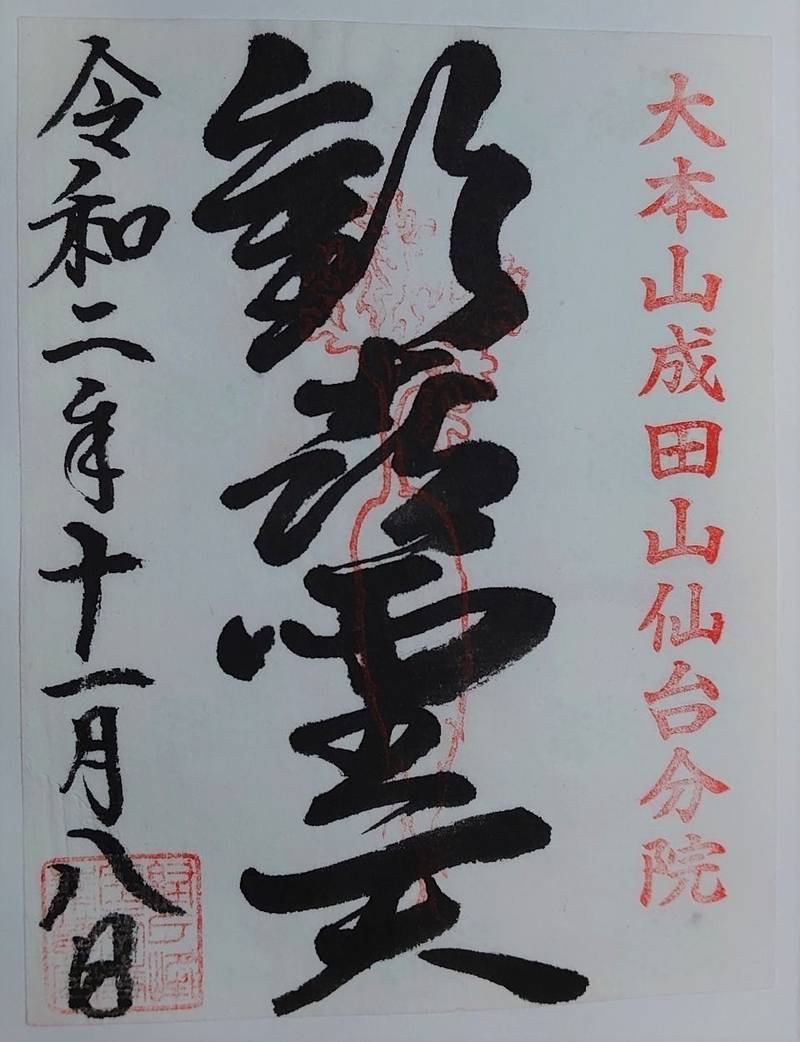 大本山成田山仙台分院
歓喜聖天
令和二年十一月八日